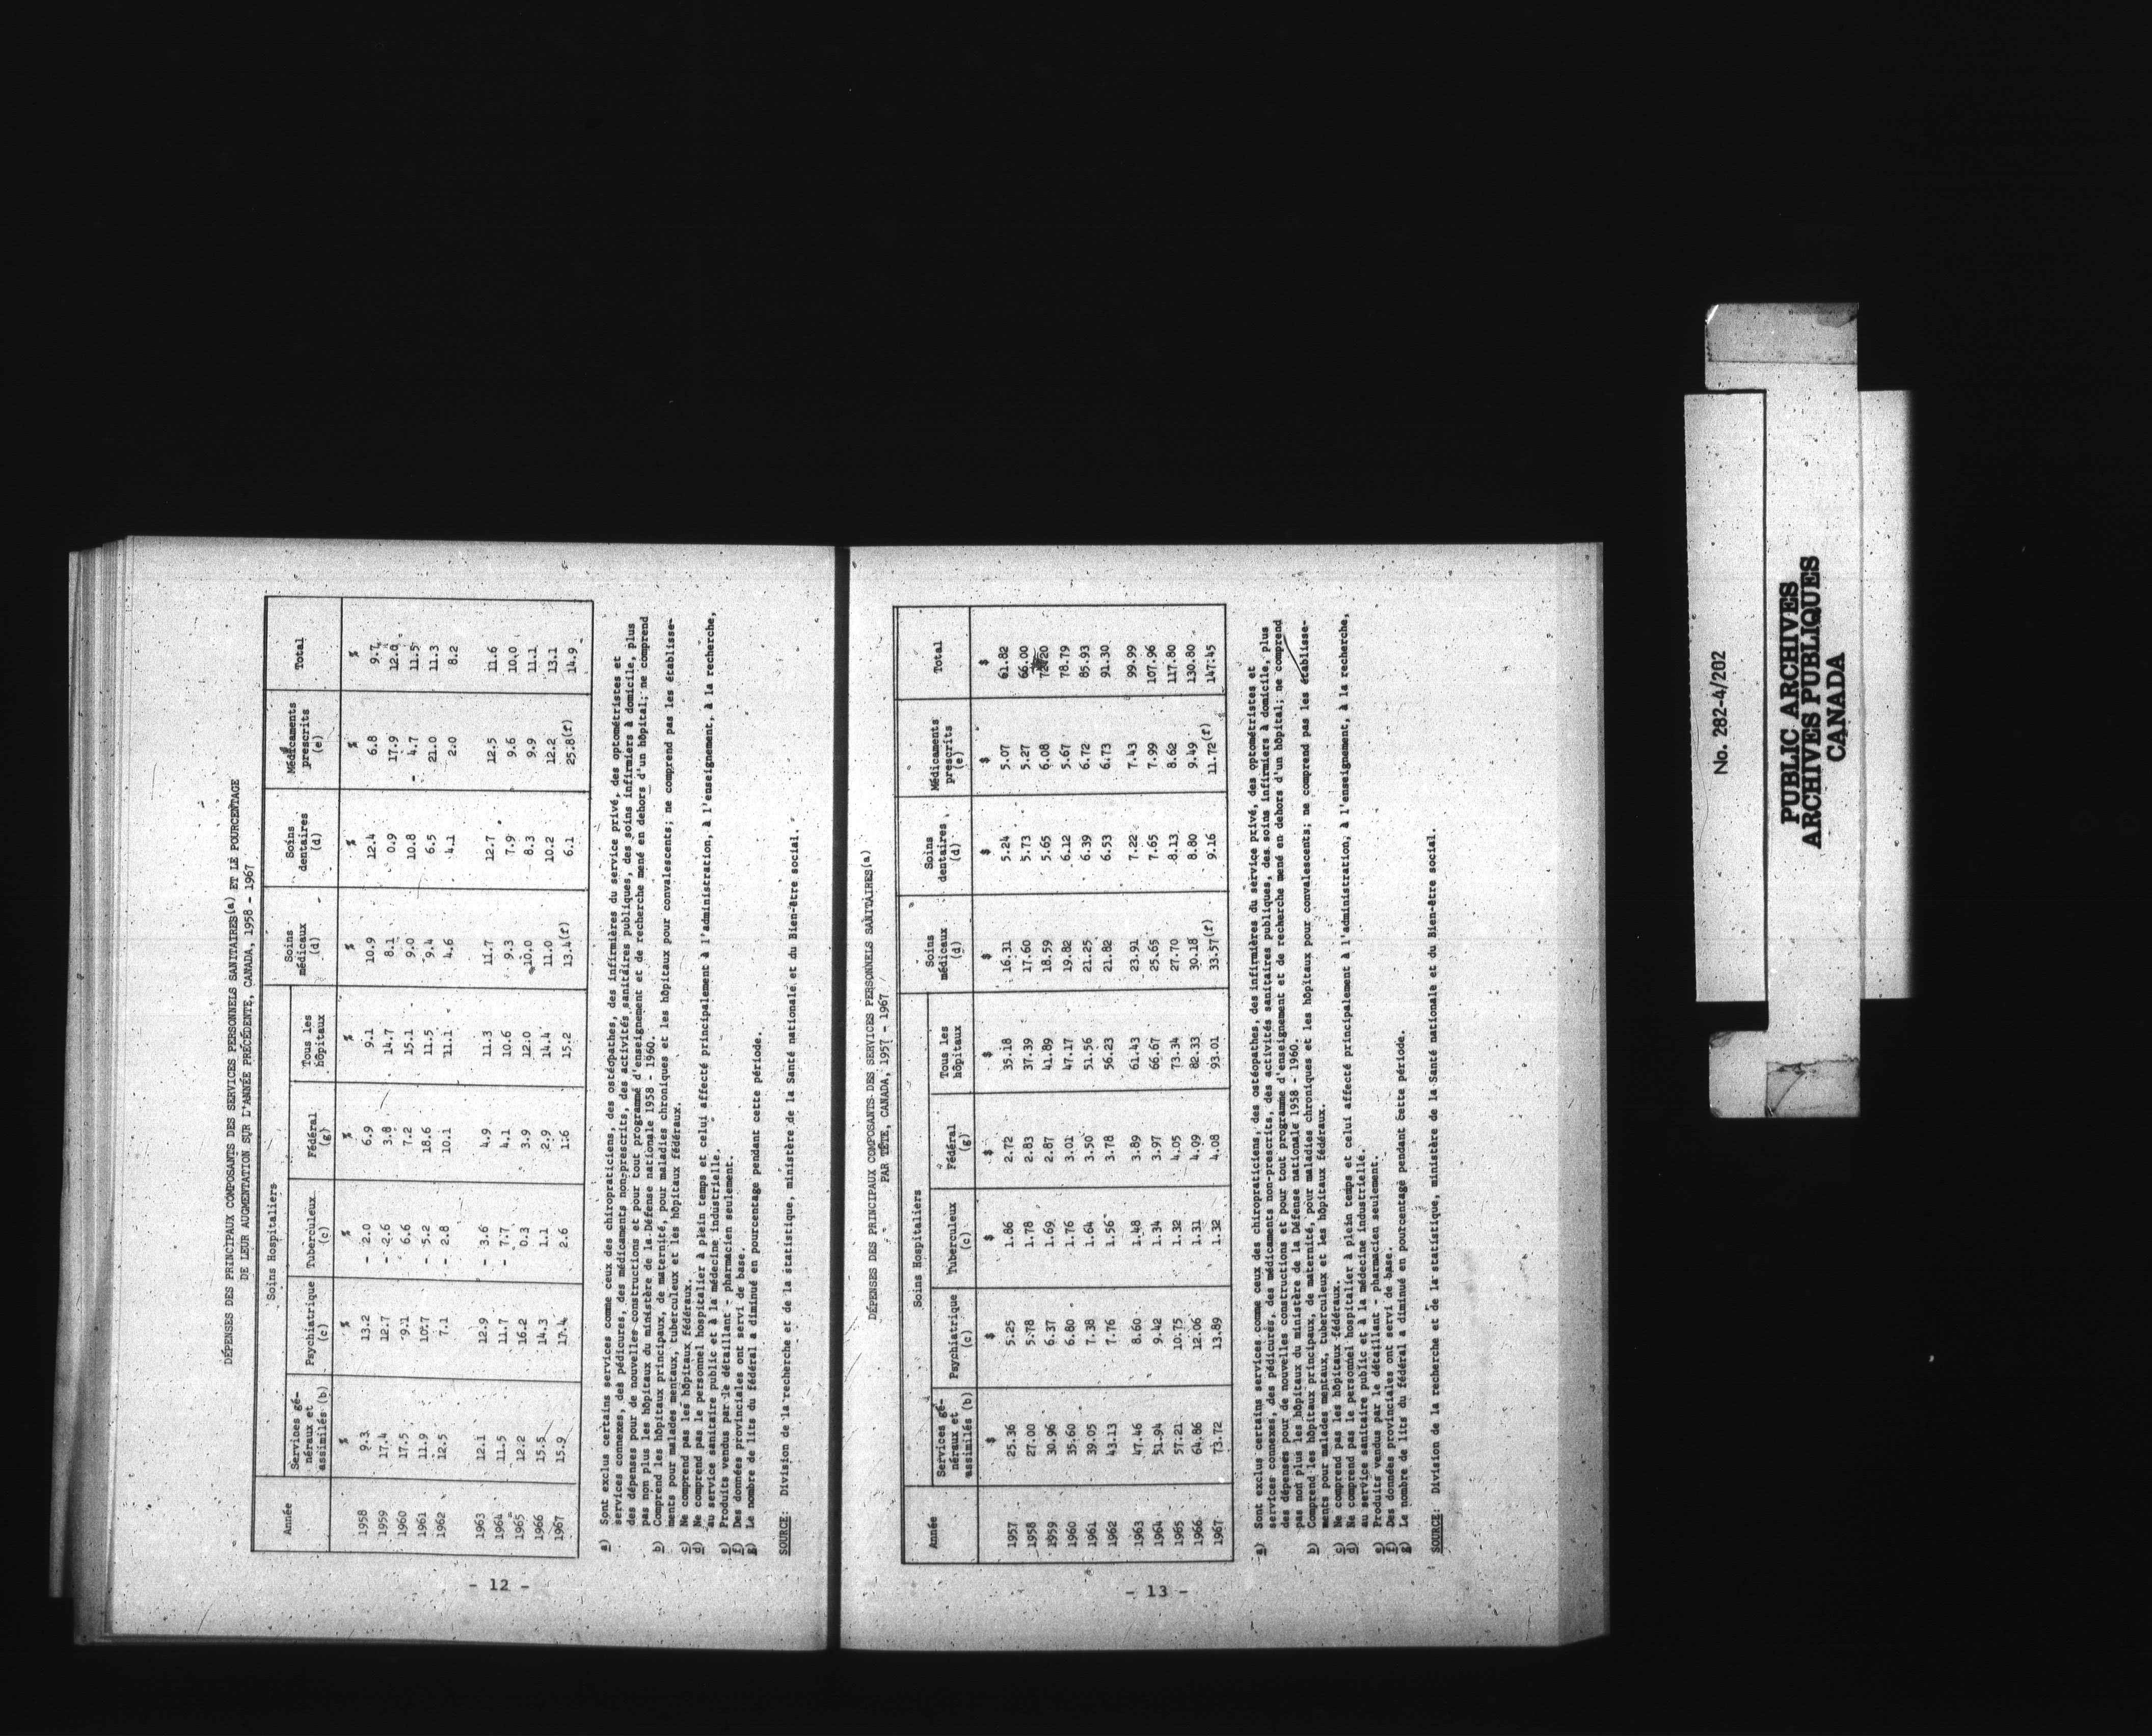 DÉPENSES DES PRINCIPAUX COMPOSANTS DES SERVICES PERSONNELS SANITAIRES(a) ET LE POURCENTAGE
DE LEUR AUGMENTATION SUR L'ANNÉE PRÉCÉDENTE, CANADA, 1958 - 1967
Soins Hospitaliers
Année Services généraux et assimilés (b) Psychiatrique (c) Tuberculeux (c) Fédéral (g) Tous les hôpitaux Soins médicaux (d) Soins dentaires (d) Médicaments prescrits (e) Total
% % % % % % % % %
1958 9.3 13.2 - 2.0 6.9 9.1 10.9 12.4 6.8 9.7
1959 17.4 12.7 - 2.6 3.8 14.7 8.1 0.9 17.9 12.0
1960 17.5 9.1 6.6 7.2 15.1 9.0 10.8 - 4.7 11.5
1961 11.9 10.7 - 5.2 18.6 11.5 9.4 6.5 21.0 11.3
1962 12.5 7.1 - 2.8 10.1 11.1 4.6 4.1 2.0 8.2
1963 12.1 12.9 - 3.6 4.9 11.3 11.7 12.7 12.5 11.6
1964 11.5 11.7 - 7.7 4.1 10.6 9.3 7.9 9.6 10.0
1965 12.2 16.2 0.3 3.9 12.0 10.0 8.3 9.9 11.1
1966 15.5 14.3 1.1 2.9 14.4 11.0 10.2 12.2 13.1
1967 15.9 17.4 2.6 1.6 15.2 13.4(f) 6.1 25.8(f) 14.9
a) Sont exclus certains services comme ceux des chiropraticiens, des ostéopathes, des infirmières du service privé, des optométristes et
services connexes, des pédicures, des médicaments non-prescrits, des activités sanitaires publiques, des soins infirmiers à domicile, plus
des dépenses pour de nouvelles constructions et pour tout programme d'enseignement et de recherche mené en dehors d'un hôpital; ne comprend
pas non plus les hôpitaux du ministère de la Défense nationale 1958 - 1960.
b) Comprend les hôpitaux principaux, de maternité, pour maladies chroniques et les hôpitaux pour convalescents; ne comprend pas les établisse-
ments pour malades mentaux, tuberculeux et les hôpitaux fédéraux.
c) Ne comprend pas les hôpitaux fédéraux.
d) Ne comprend pas le personnel hospitalier à plein temps et celui affecté principalement à l'administration, à l'enseignement, à la recherche,
au service sanitaire public et à la médecine industrielle.
e) Produits vendus par le détaillant - pharmacien seulement.
f) Des données provinciales ont servi de base.
g) Le nombre de lits du fédéral a diminué en pourcentage pendant cette période.
SOURCE: Division de la recherche et de la statistique, ministère de la Santé nationale et du Bien-être social.
- 12 -
DÉPENSES DES PRINCIPAUX COMPOSANTS DES SERVICES PERSONNELS SANITAIRES(a)
PAR TÊTE, CANADA, 1957 - 1967
Soins Hospitaliers
Année Services généraux et assimilés (b) Psychiatrique (c) Tuberculeux (c) Fédéral (g) Tous les hôpitaux Soins médicaux (d) Soins dentaires (d) Médicaments prescrits (e) Total
$ $ $ $ $ $ $ $ $
1957 25.36 5.25 1.86 2.72 35.18 16.31 5.24 5.07 61.82
1958 27.00 5.78 1.78 2.83 37.39 17.60 5.73 5.27 66.00
1959 30.96 6.37 1.69 2.87 41.89 18.59 5.65 6.08
1960 35.60 6.80 1.76 3.01 47.17 19.82 6.12 5.67 78.79
1961 39.05 7.38 1.64 3.50 51.56 21.25 6.39 6.72 85.93
1962 43.13 7.76 1.56 3.78 56.23 21.82 6.53 6.73 91.30
1963 47.46 8.60 1.48 3.89 61.43 23.91 7.22 7.43 99.99
1964 51.94 9.42 1.34 3.97 66.67 25.65 7.65 7.99 107.96
1965 57.21 10.75 1.32 4.05 73.34 27.70 8.13 8.62 117.80
1966 64.86 12.06 1.31 4.09 82.33 30.18 8.80 9.49 130.80
1967 73.72 13.89 1.32 4.08 93.01 33.57(f) 9.16 11.72(f) 147.45
a) Sont exclus certains services comme ceux des chiropraticiens, des ostéopathes, des infirmières du service privé, des optométristes et
services connexes, des pédicures, des médicaments non-prescrits, des activités sanitaires publiques, des soins infirmiers à domicile, plus
des dépenses pour de nouvelles constructions et pour tout programme d'enseignement et de recherche mené en dehors d'un hôpital; ne comprend
pas non plus les hôpitaux du ministère de la Défense nationale 1958 - 1960.
b) Comprend les hôpitaux principaux, de maternité, pour maladies chroniques et les hôpitaux pour convalescents; ne comprend pas les établisse-
ments pour malades mentaux, tuberculeux et les hôpitaux fédéraux.
c) Ne comprend pas les hôpitaux fédéraux.
d) Ne comprend pas le personnel hospitalier à plein temps et celui affecté principalement à l'administration, à l'enseignement, à la recherche,
au service sanitaire public et à la médecine industrielle.
e) Produits vendus par le détaillant - pharmacien seulement.
f) Des données provinciales ont servi de base.
g) Le nombre de lits du fédéral a diminué en pourcentage pendant cette période.
SOURCE: Division de la recherche et de la statistique, ministère de la Santé nationale et du Bien-être social.
- 13 -
No. 282-4/202
PUBLIC ARCHIVES
ARCHIVES PUBLIQUES
CANADA